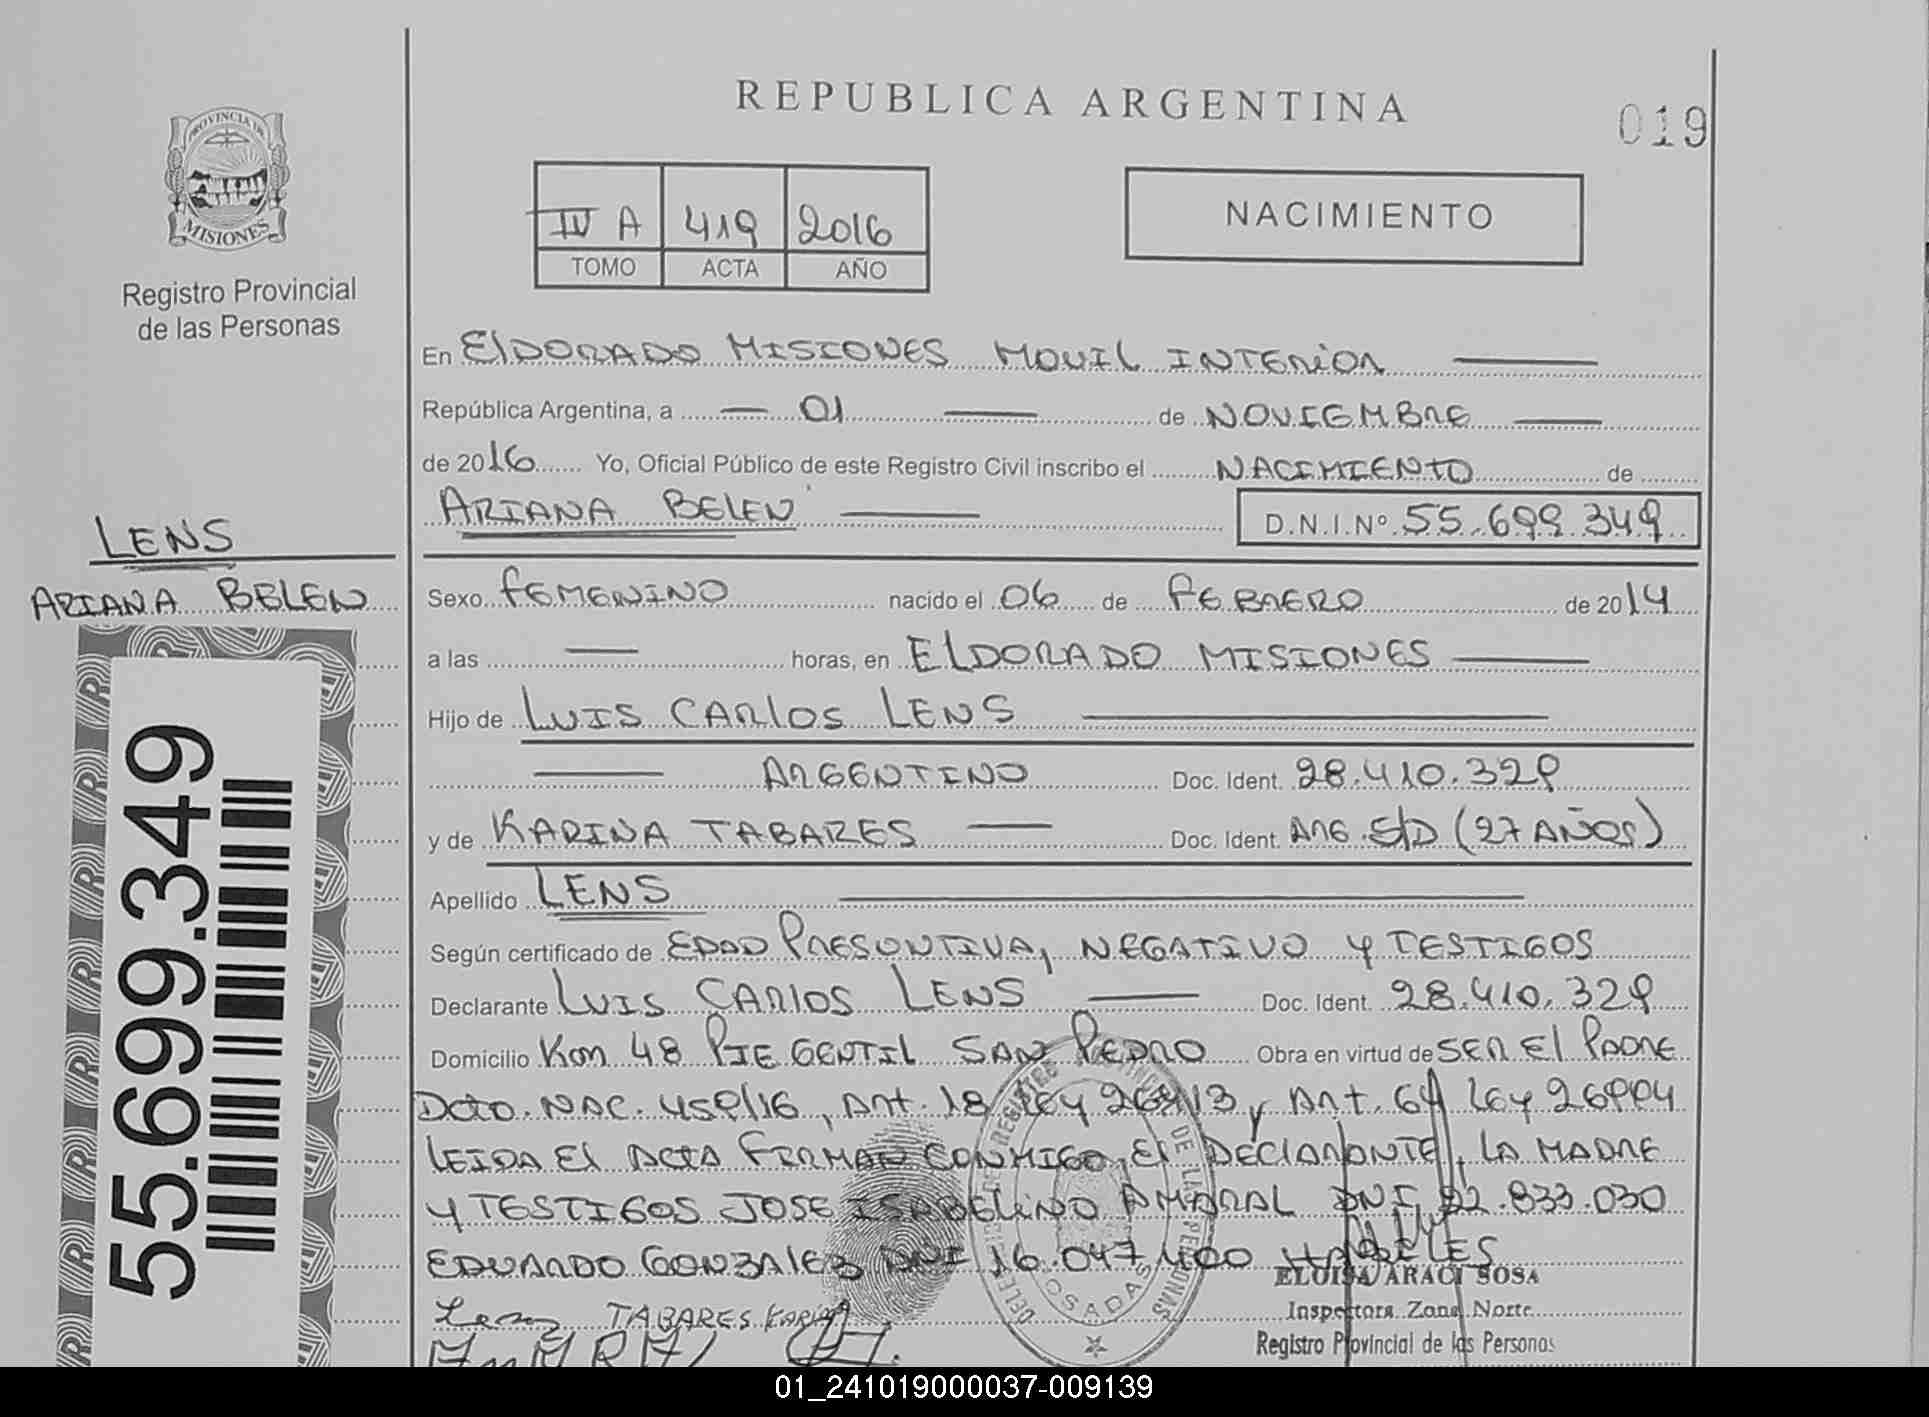 REPUBLICA ARGENTINA
019
PROVINCIA DE
MISIONES
Registro Provincial
de las Personas
IV A 419 2016
TOMO ACTA AÑO
NACIMIENTO
En ELDORADO MISIONES MOVIL INTERIOR
República Argentina, a 01 de NOVIEMBRE
de 2016 Yo, Oficial Público de este Registro Civil inscribo el NACIMIENTO de
ARIANA BELEN D.N.I.Nº 55.699.349
LENS
ARIANA BELEN
Sexo FEMENINO nacido el 06 de FEBRERO de 2014
a las horas, en ELDORADO MISIONES
Hijo de LUIS CARLOS LENS
ARGENTINO Doc. Ident. 28.410.329
y de KARINA TABARES Doc. Ident. ARG. S/D (27 AÑOS)
Apellido LENS
Según certificado de EDAD PRESUNTIVA, NEGATIVO Y TESTIGOS
Declarante LUIS CARLOS LENS Doc. Ident. 28.410.329
Domicilio Km 48 PIE GENTIL SAN PEDRO Obra en virtud de SER El PADRE
Dcto. NAC. 459/16, Art. 18 Ley 26413 y Art. 64 Ley 26994
LEIDA El ACTA FIRMAN CONMIGO, El DECLARANTE, LA MADRE
Y TESTIGOS JOSE ISABELINO AMARAL DNI 92.833.030
EDUARDO GONZALEZ DNI 16.047.400 HABILES
ELOISA ARACI SOSA
Inspectora Zona Norte
Registro Provincial de las Personas
Lens TABARES KARINA
55.699.349
01_241019000037-009139